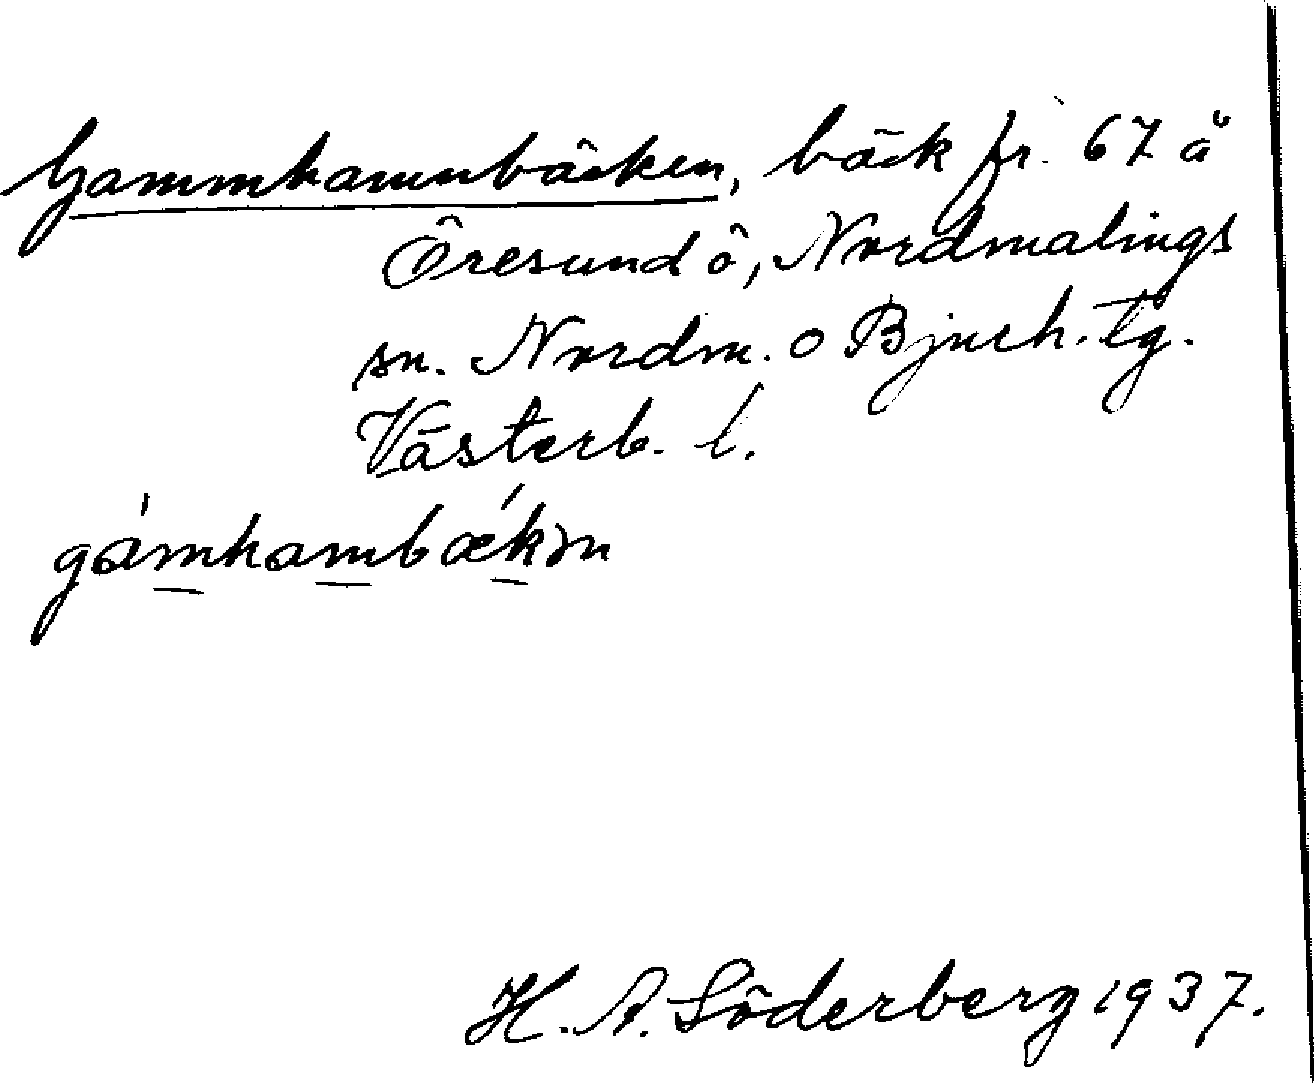 Gammhamnbäcken, bäck fr. 67 å
Öresund ö, Nordmalings
sn. Nordm. o Bjurh. tg.
Västerb. l.
gàmhambǽkən
H. A. Söderberg 1937.